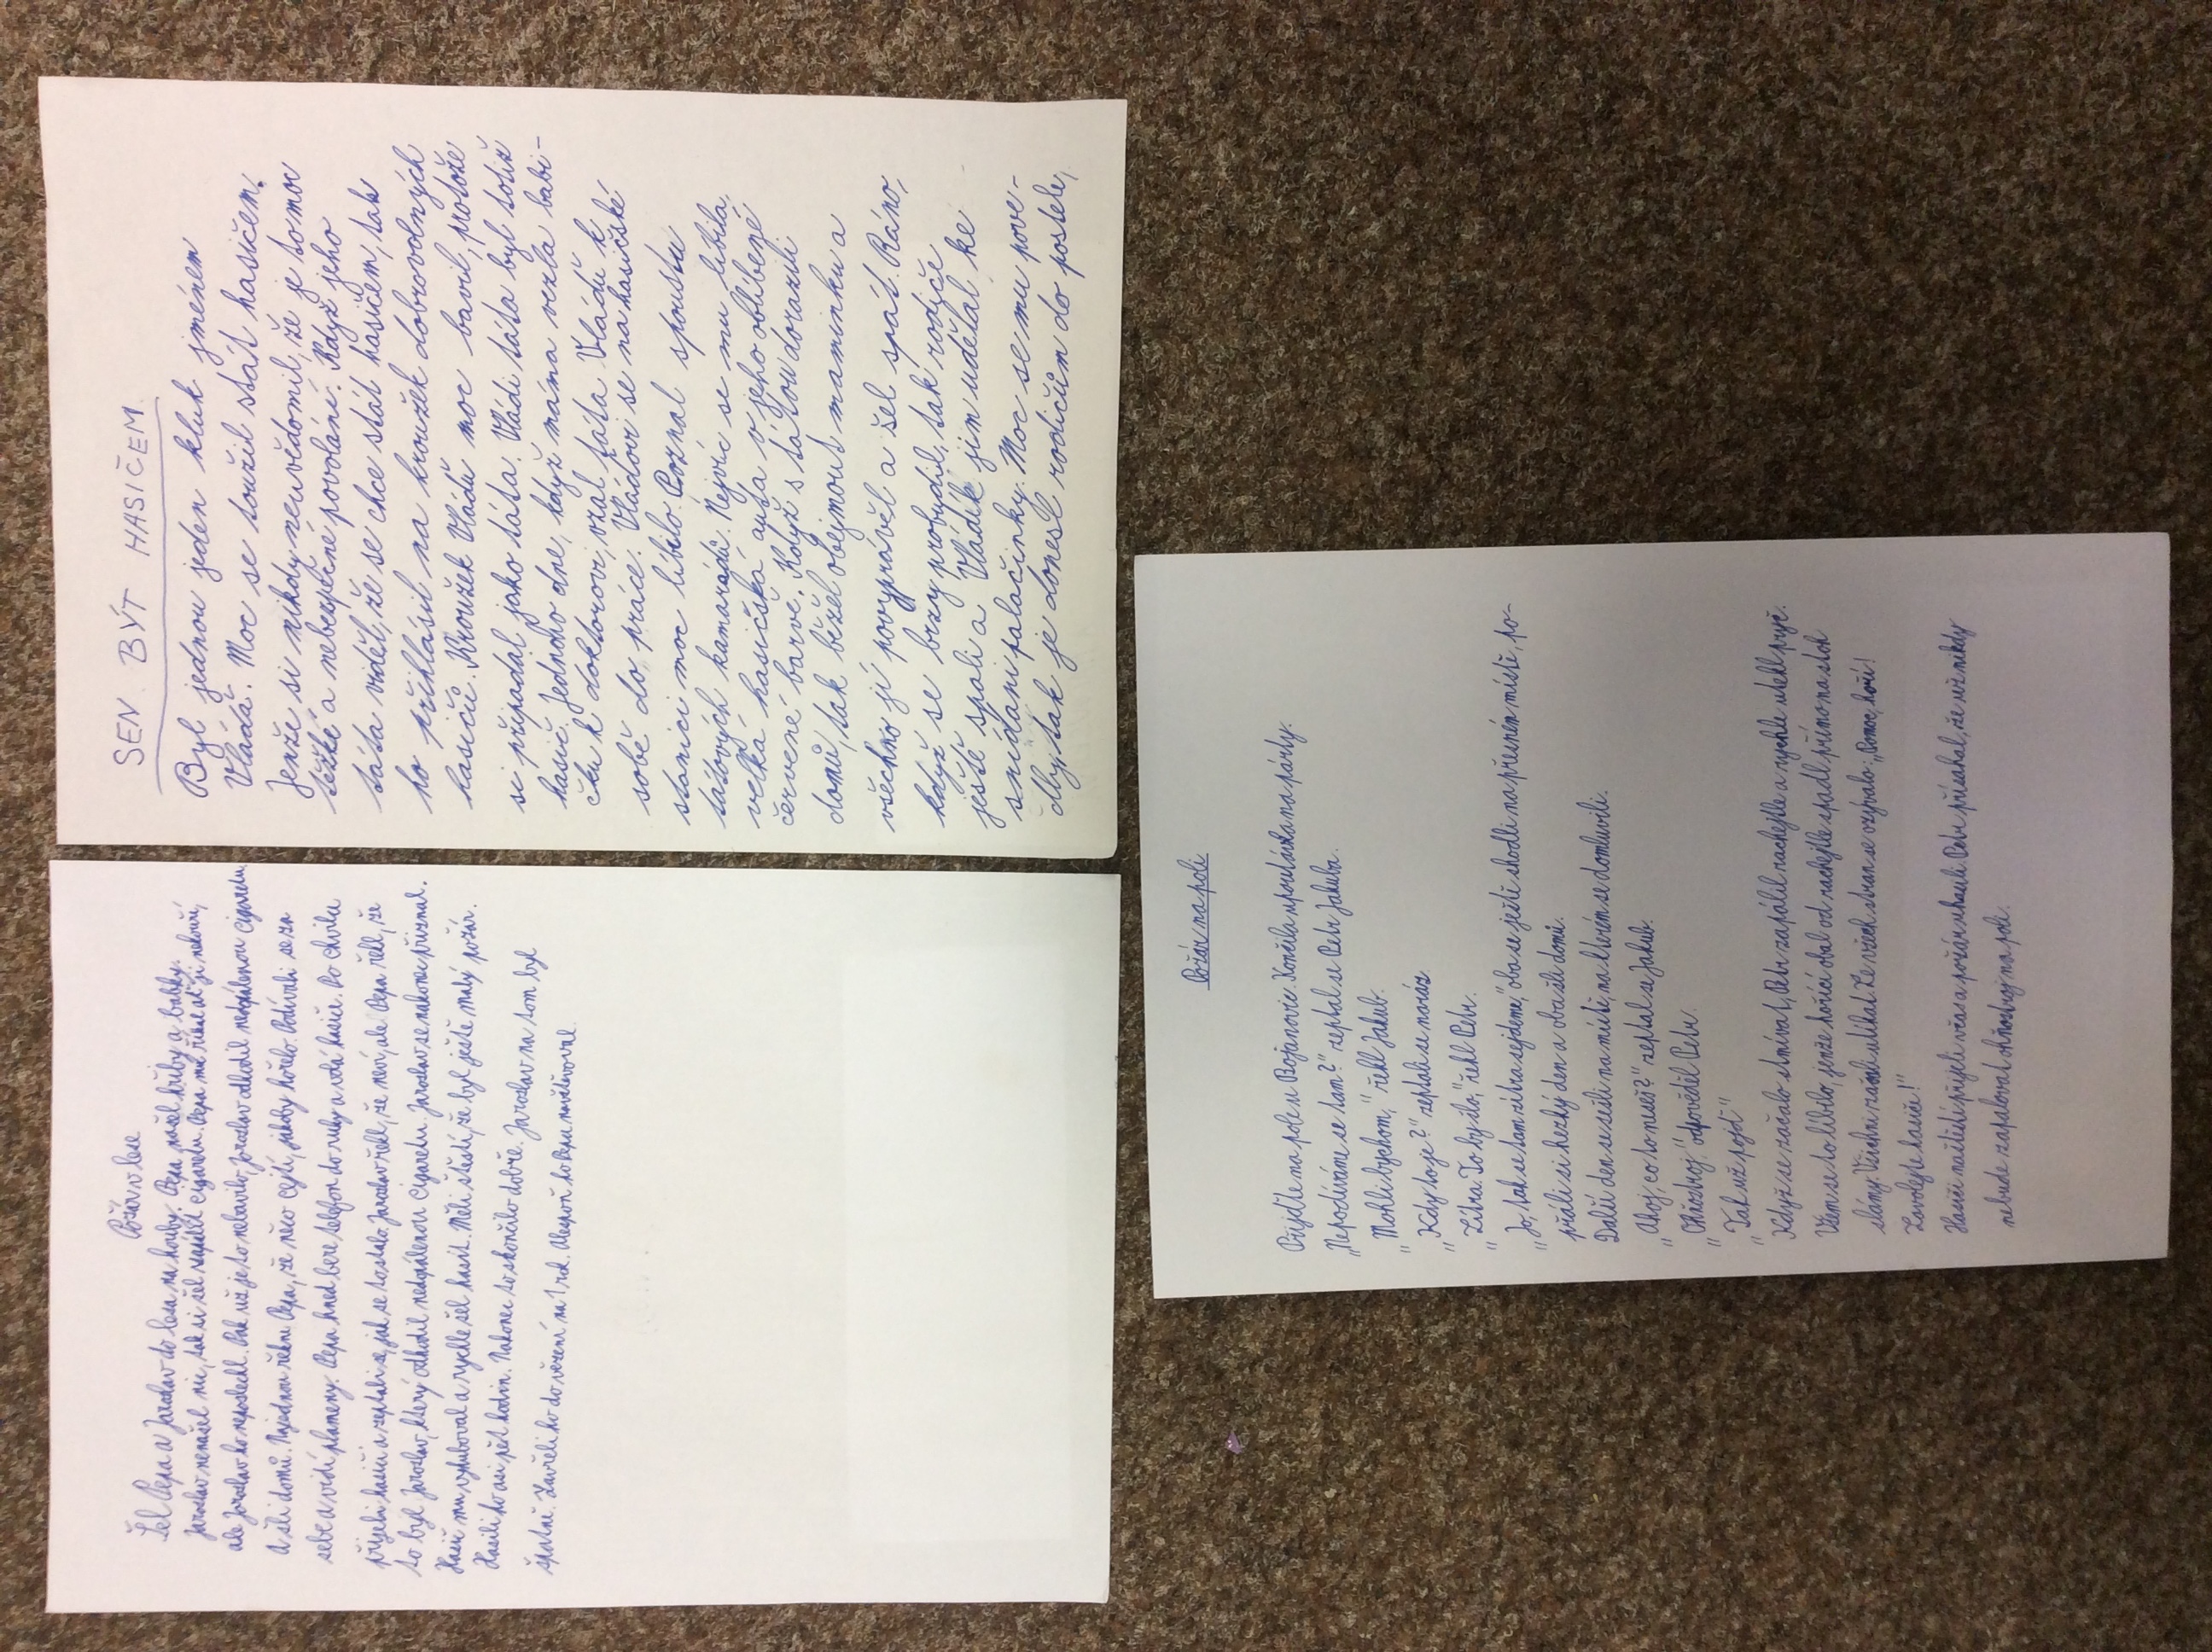 Požár v lese
Šel Pepa a Jaroslav do lesa na houby. Pepa našel hřiby a babky.
Jaroslav nenašel nic, tak si šel zapálit cigaretu. Pepa mu říkal ať ji nekouří,
ale Jaroslav ho neposlechl. Pak už je to nebavilo, Jaroslav odhodil nedopálenou cigaretu
a šli domů. Najednou řekne Pepa, že něco cejtí, jakoby hořelo. Podívali se za
sebe a vidí plameny. Pepa hned bere telefon do ruky a volá hasiče. Po chvilce
přijeli hasiči a zeptali se, jak se to stalo. Jaroslav řekl, že neví, ale Pepa řekl, že
to byl Jaroslav, který odhodil nedopálenou cigaretu. Jaroslav se nakonec přiznal.
Hasič mu vyhuboval a rychle šel hasit. Měli štěstí, že byl ještě malý požár.
Hasili ho asi pět hodin. Nakonec to skončilo dobře. Jaroslav na tom byl
špatně. Zavřeli ho do vězení na 1 rok. Alespoň ho Pepa navštěvoval.
SEN BÝT HASIČEM
Byl jednou jeden kluk jménem
Vláďa. Moc se toužil stát hasičem.
Jenže si nikdy neuvědomil, že je to moc
těžké a nebezpečné povolání. Když jeho
táta viděl, že se chce stát hasičem, tak
ho přihlásil na kroužek dobrovolných
hasičů. Kroužek Vláďu moc bavil, protože
si připadal jako táta. Vládi táta byl totiž
hasič. Jednoho dne, když máma vezla babi-
čku k doktorovi, vzal táta Vláďu k
sobě do práce. Vláďovi se na hasičské
stanici moc líbilo. Poznal spoustu
tátových kamarádů. Nejvíc se mu líbila
velká hasičská auta v jeho oblíbené
červené barvě. Když s tátou dorazili
domů, tak běžel obejmout maminku a
všechno jí povyprávěl a šel spát. Ráno,
když se brzy probudil, tak rodiče
ještě spali a Vládík jim udělal ke
snídani palačinky. Moc se mu pove-
dly, tak je donesl rodičům do postele,
Požár na poli
Přijďte na pole u Bojanovic. Končila upoutávka na párty.
„Nepodíváme se tam?" zeptal se Petr Jakuba.
„Mohli bychom," řekl Jakub.
„Kdy to je?" zeptali se naráz
„Zítra. To by šlo," řekl Petr.
„Jo, tak se tam zítra sejdeme," oba se ještě shodli na přesném místě, po-
přáli si hezký den a oba šli domů.
Další den se sešli na místě, na kterém se domluvili.
„Ahoj, co to neseš?" zeptal se Jakub.
„Ohňostroj." odpověděl Petr.
„Tak už pojď"
Když se začalo stmívat, Petr zapálil rachejtle a rychle utekl pryč.
Všem se to líbilo, jenže hořící obal od rachejtle spadl přímo na stoh
slámy. Všichni začali utíkat. Ze všech stran se ozývalo: „Pomoc, hoří!
Zavolejte hasiče!"
Hasiči naštěstí přijeli včas a požár uhasili. Petr přísahal, že už nikdy
nebude zapalovat ohňostroj na poli.